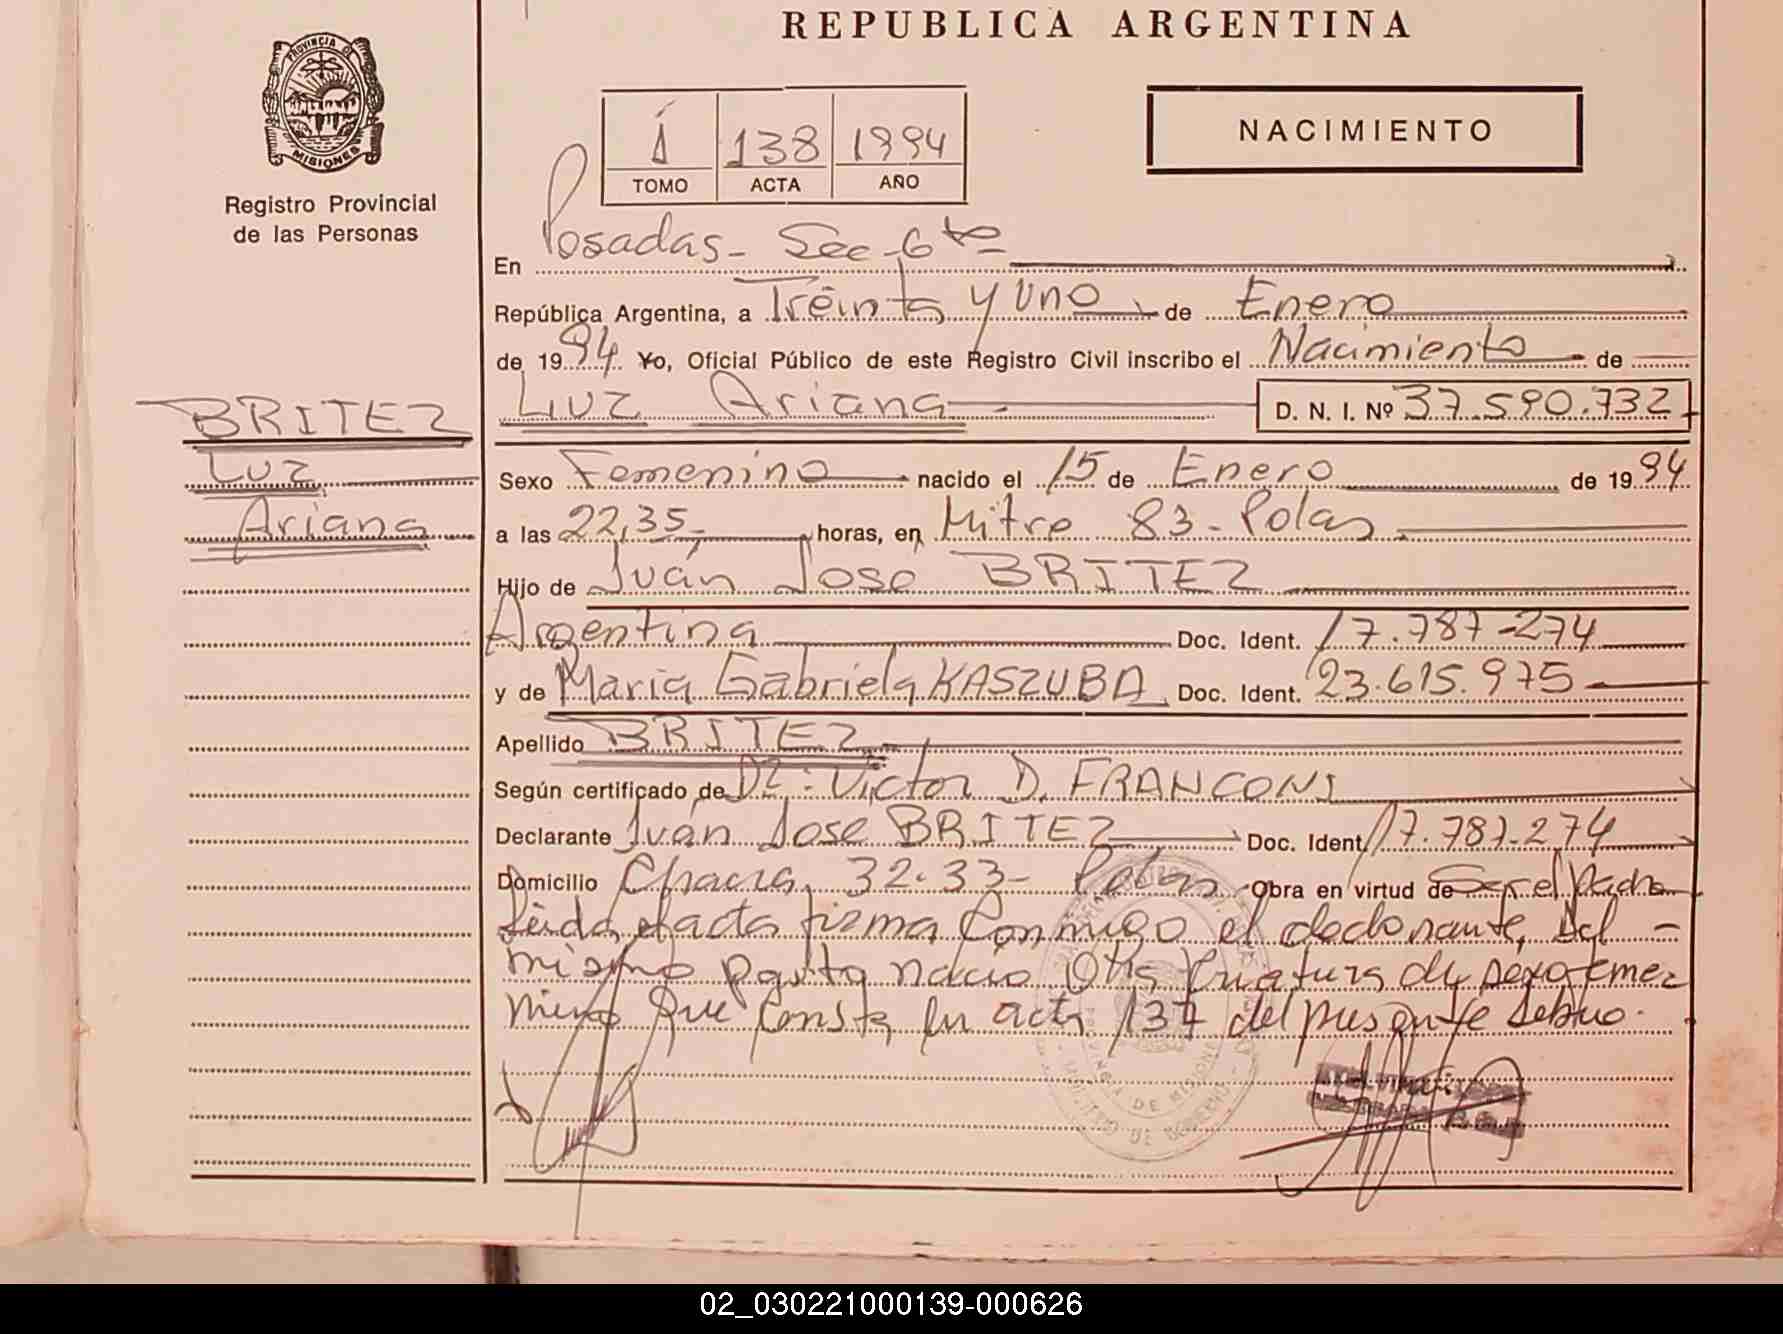 REPUBLICA ARGENTINA
PROVINCIA D
MISIONES
Registro Provincial
de las Personas
1 138 1994
TOMO ACTA AÑO
NACIMIENTO
En Posadas - Sec 6ta
República Argentina, a Treinta y Uno de Enero
de 1994 Yo, Oficial Público de este Registro Civil inscribo el Nacimiento de
Luz Ariana D. N. I. Nº 37.590.732
BRITEZ
Luz
Ariana
Sexo Femenino nacido el 15 de Enero de 1994
a las 22,35 horas, en Mitre 83 - Pdas
Hijo de Iván José BRITEZ
Argentina Doc. Ident. 17.787-274
y de María Gabriela KASZUBA Doc. Ident. 23.615.975
Apellido BRITEZ
Según certificado de Dr. Victor D. FRANCONI
Declarante Iván José BRITEZ Doc. Ident. 17.787-274
Domicilio Chacra 32-33 - Pdas Obra en virtud de Ser el Padre
Leida el acta firma conmigo el declarante, Del
mismo parto nacio Otra Criatura de sexo feme
nino que consta en acta 137 del presente
PROVINCIA DE MISIONES
MINISTERIO DE GOBIERNO
02_030221000139-000626